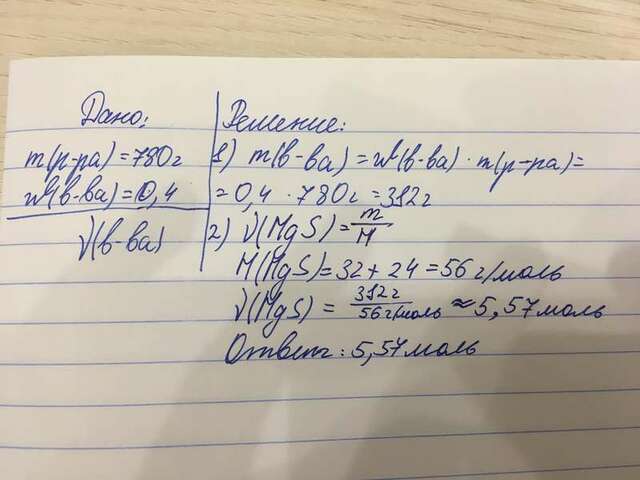 Дано:
m(р-ра) = 780г
w(в-ва) = 0,4
ν(в-ва)
Решение:
1) m(в-ва) = w(в-ва) · m(р-ра) =
= 0,4 · 780г = 312г
2) ν(MgS) = m/M
M(MgS) = 32 + 24 = 56 г/моль
ν(MgS) = 312г/56г/моль ≈ 5,57 моль
Ответ: 5,57 моль